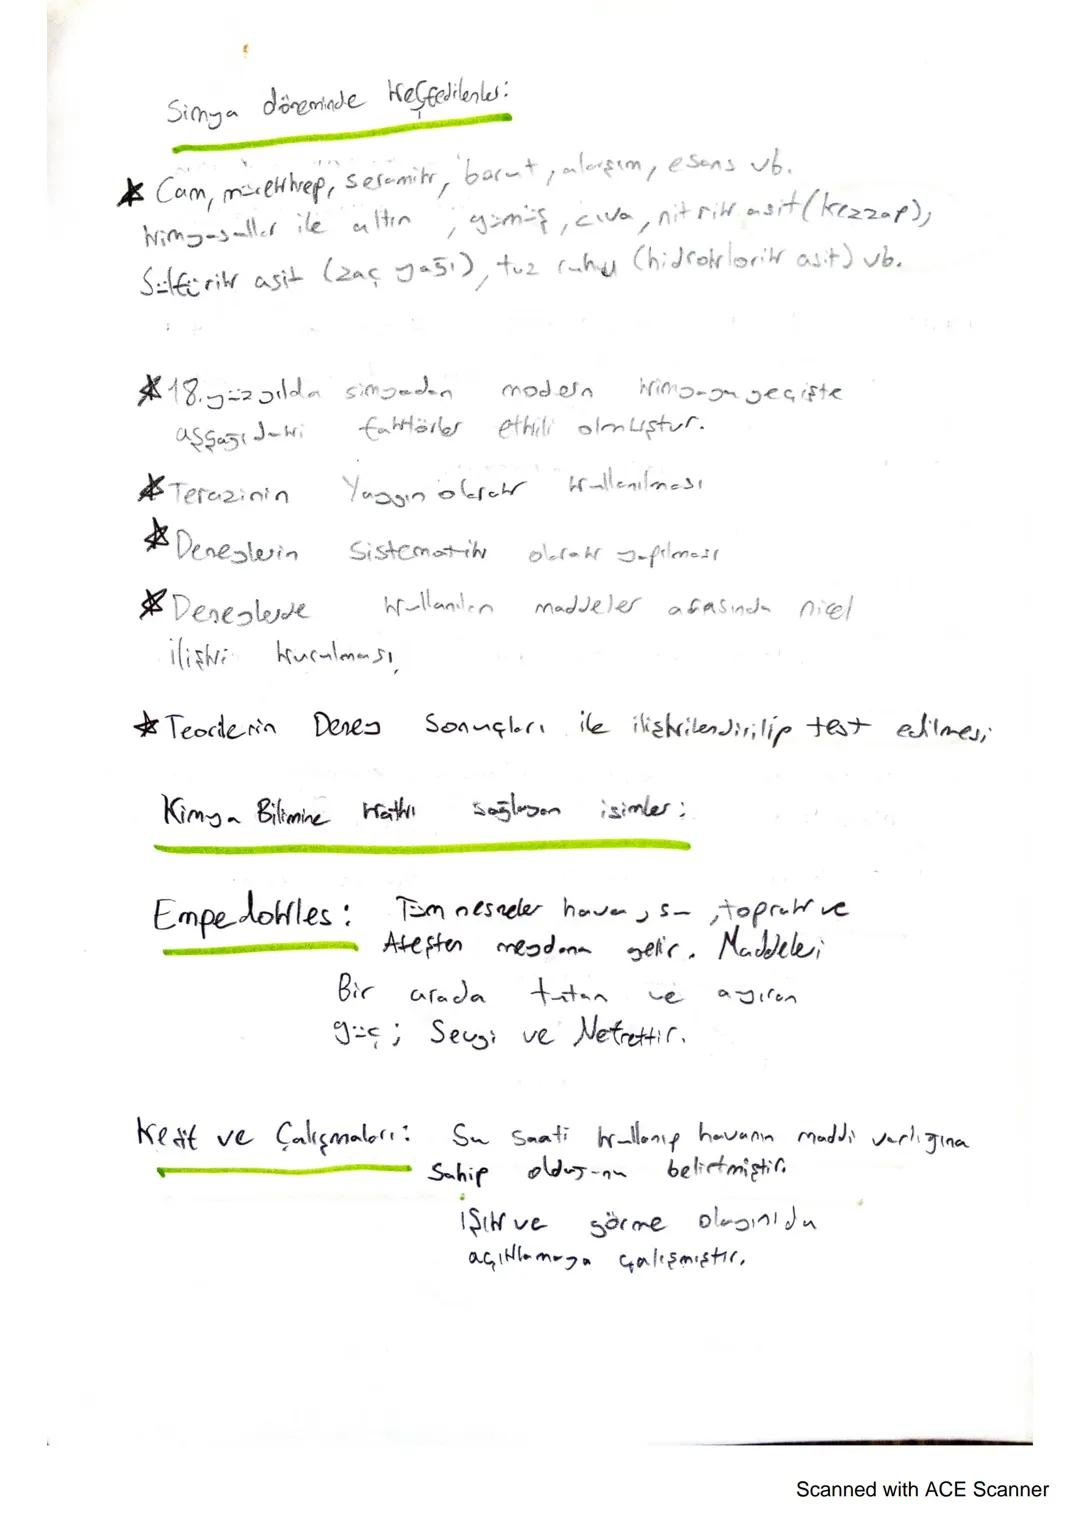 Simya döneminde Keşfedilenler:
Cam, mürekkep, seramik, barut, alaşım, esans vb.
kimyasallar ile altın, gümüş, cıva, nitrik asit (kezzap),
Sülfürik asit (zaç yağı), tuz ruhu (hidroklorik asit) vb.
18. yüzyılda simyadan modern kimyaya geçişte
aşşağıdaki faktörler etkili olmuştur.
Terazinin Yaygın olarak kullanılması
Deneylerin Sistematik olarak yapılması
Deneylerde kullanılan maddeler arasında nicel
ilişki kurulması,
Teorilerin Deney Sonuçları ile ilişkilendirilip test edilmesi
Kimya Bilimine katkı sağlayan isimler:
Empedokles: Tüm nesneler hava, su, toprak ve
Ateşten meydana gelir. Maddeleri
Bir arada tutan ve ayıran
güç; Sevgi ve Nefrettir.
Keşif ve Çalışmaları: Su saati kullanıp havanın maddi varlığına
Sahip olduğunu belirtmiştir.
Işık ve görme olayınıda
açıklamaya çalışmıştır.
Scanned with ACE Scanner